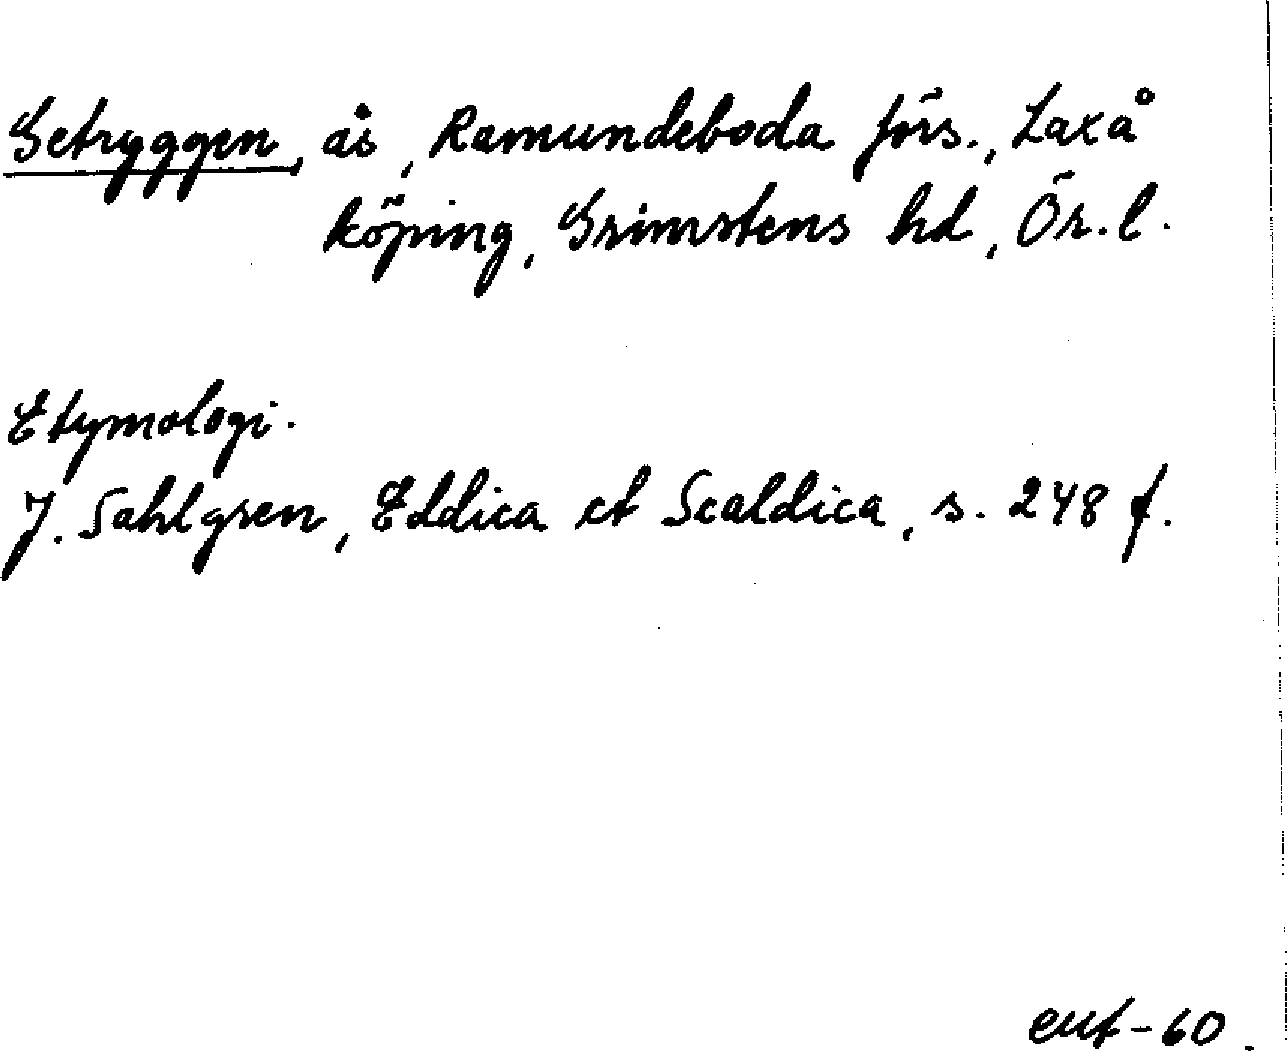 Getryggen, ås, Ramundeboda förs., Laxå
köping, Grimstens hd, Ör. l.
Etymologi.
J. Sahlgren, Eddica et Scaldica, s. 248 f.
-60.